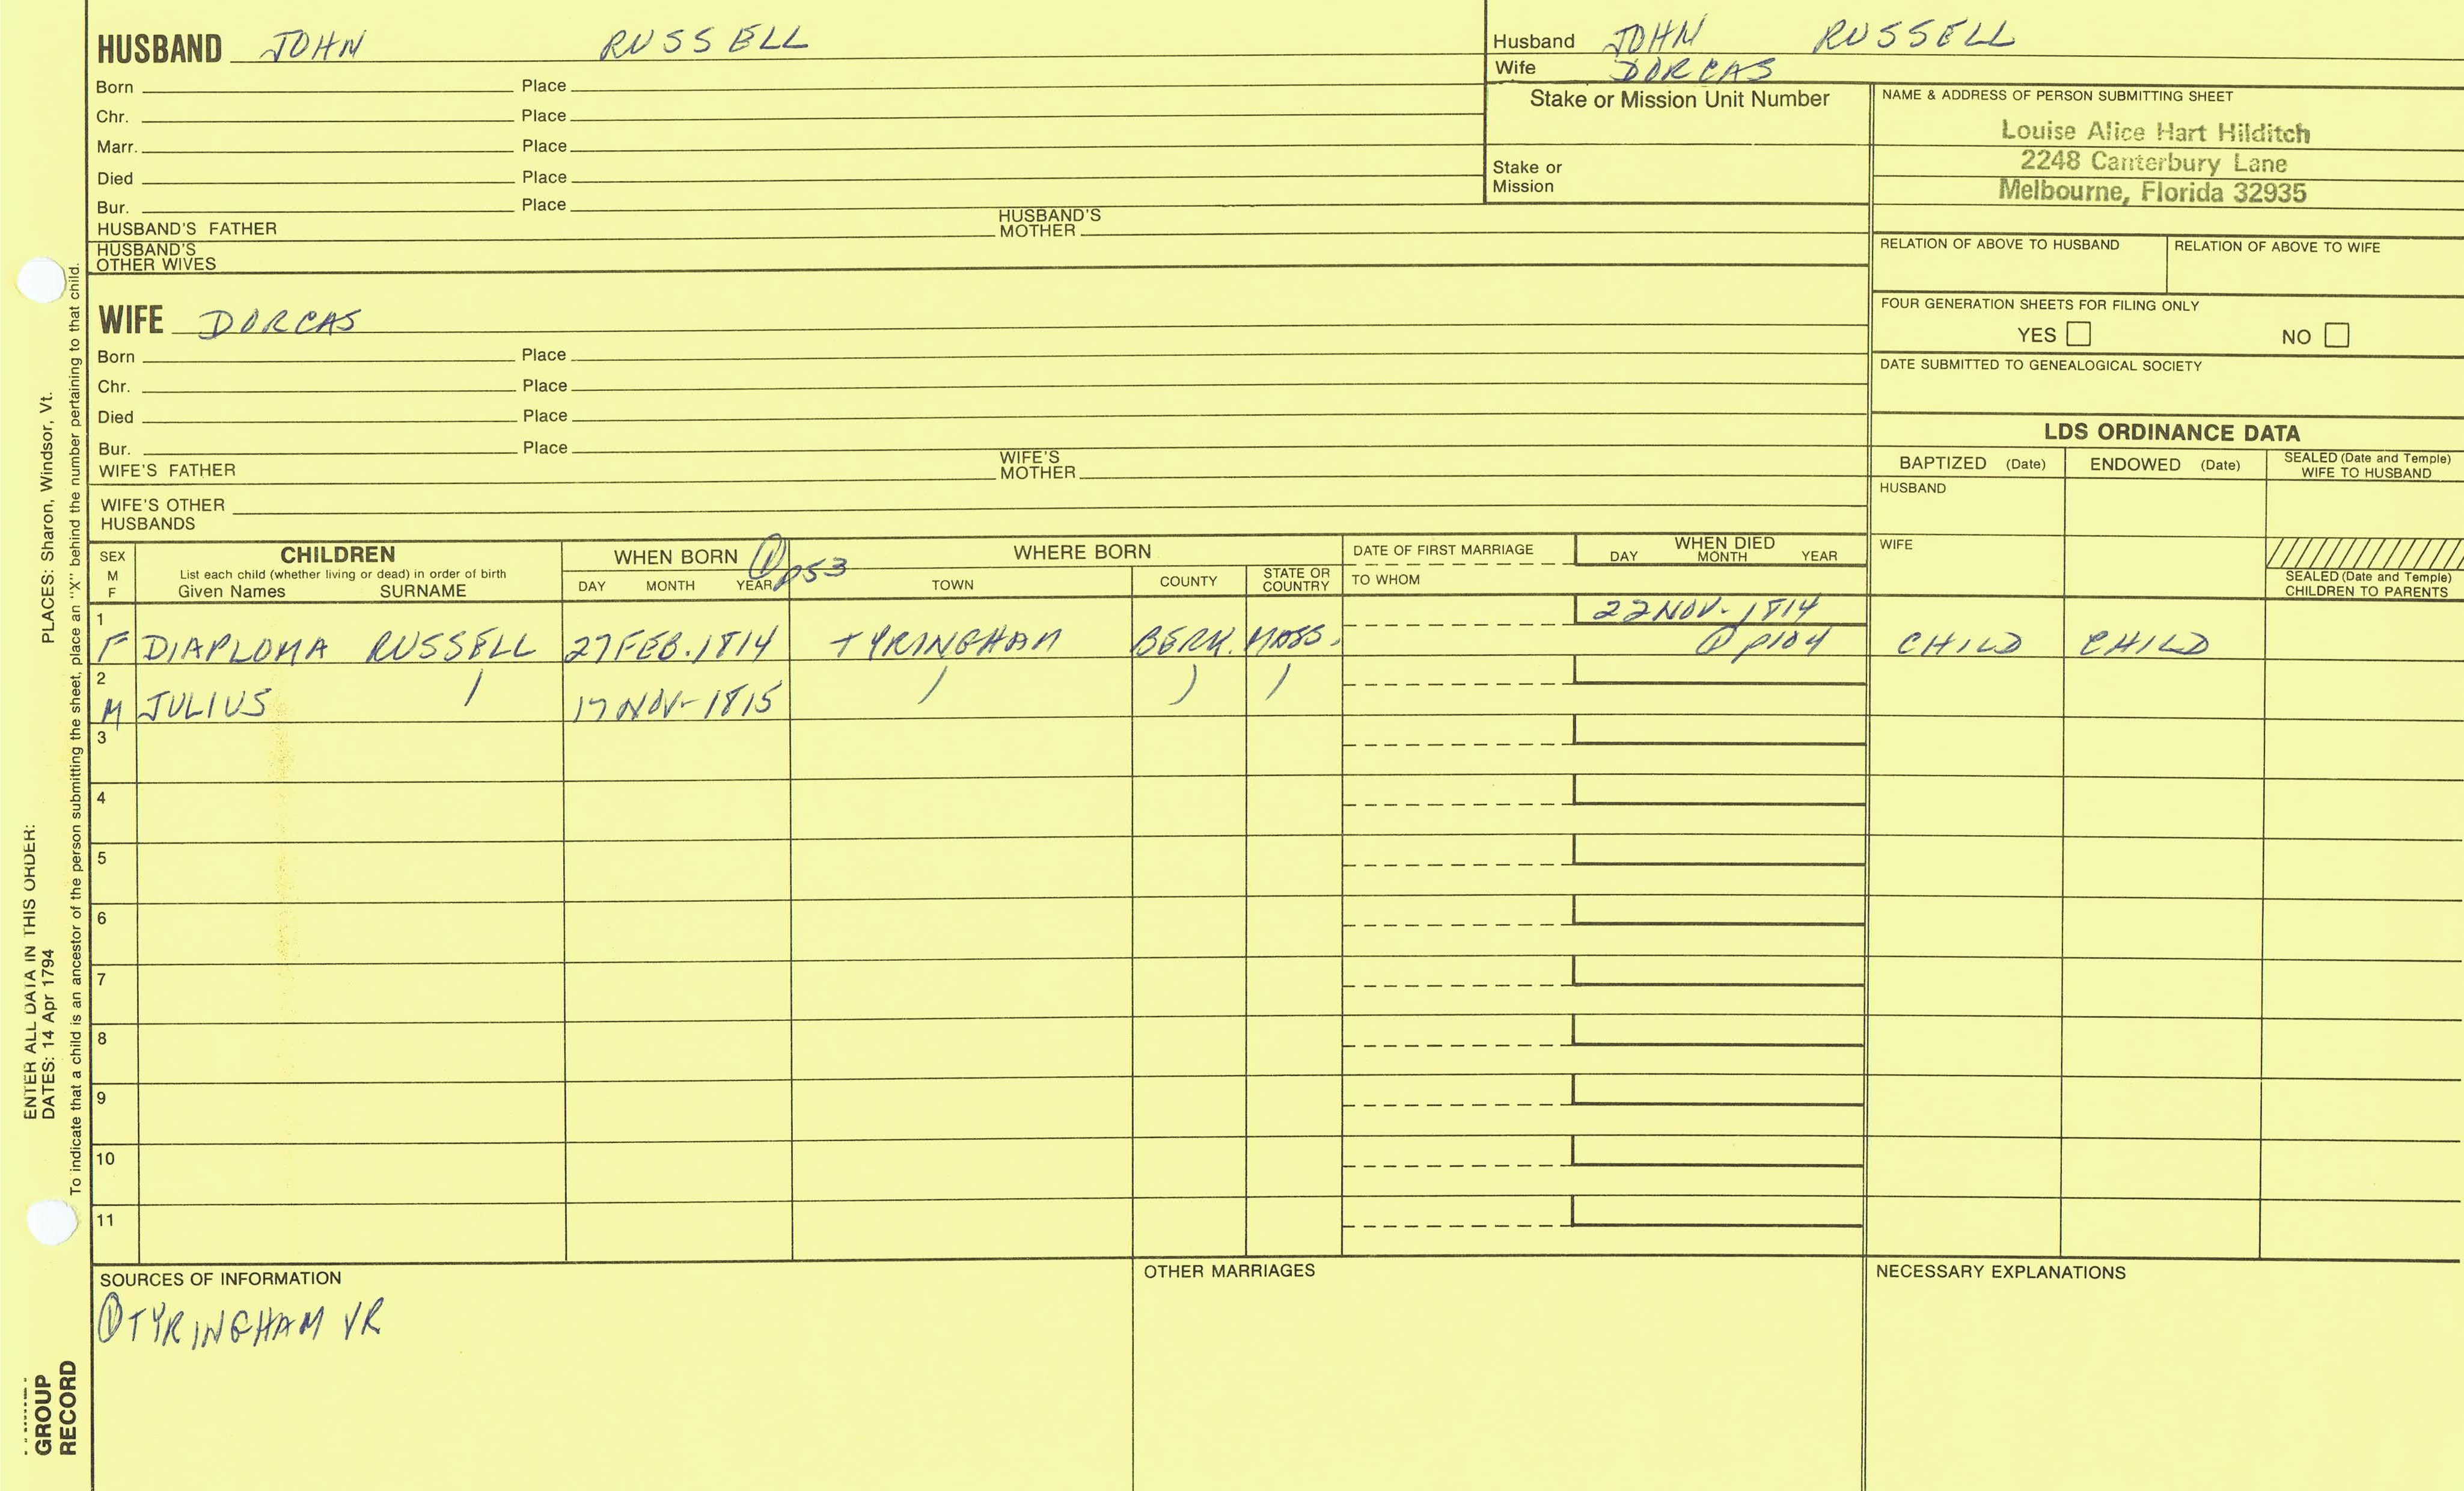 HUSBAND JOHN RUSSELL
Born Place
Chr. Place
Marr. Place
Died Place
Bur. Place
HUSBAND'S FATHER HUSBAND'S MOTHER
HUSBAND'S OTHER WIVES
WIFE DORCAS
Born Place
Chr. Place
Died Place
Bur. Place
WIFE'S FATHER WIFE'S MOTHER
WIFE'S OTHER HUSBANDS
Husband JOHN RUSSELL
Wife DORCAS
Stake or Mission Unit Number
Stake or
Mission
NAME & ADDRESS OF PERSON SUBMITTING SHEET
Louise Alice Hart Hilditch
2248 Canterbury Lane
Melbourne, Florida 32935
RELATION OF ABOVE TO HUSBAND RELATION OF ABOVE TO WIFE
FOUR GENERATION SHEETS FOR FILING ONLY
YES NO
DATE SUBMITTED TO GENEALOGICAL SOCIETY
LDS ORDINANCE DATA
BAPTIZED (Date) ENDOWED (Date) SEALED (Date and Temple) WIFE TO HUSBAND
HUSBAND
WIFE
SEALED (Date and Temple) CHILDREN TO PARENTS
SEX M F
CHILDREN
List each child (whether living or dead) in order of birth
Given Names SURNAME
WHEN BORN ① p53
DAY MONTH YEAR
WHERE BORN
TOWN COUNTY STATE OR COUNTRY
DATE OF FIRST MARRIAGE
TO WHOM
WHEN DIED
DAY MONTH YEAR
1 22 NOV. 1814
F DIAPLOMA RUSSELL 27 FEB. 1814 TYRINGHAM BERK. MASS. ① p104 CHILD CHILD
2
M JULIUS 17 NOV 1815
3
4
5
6
7
8
9
10
11
SOURCES OF INFORMATION
① TYRINGHAM VR
OTHER MARRIAGES
NECESSARY EXPLANATIONS
GROUP
RECORD
ENTER ALL DATA IN THIS ORDER:
DATES: 14 Apr 1794 PLACES: Sharon, Windsor, Vt.
To indicate that a child is an ancestor of the person submitting the sheet, place an "X" behind the number pertaining to that child.